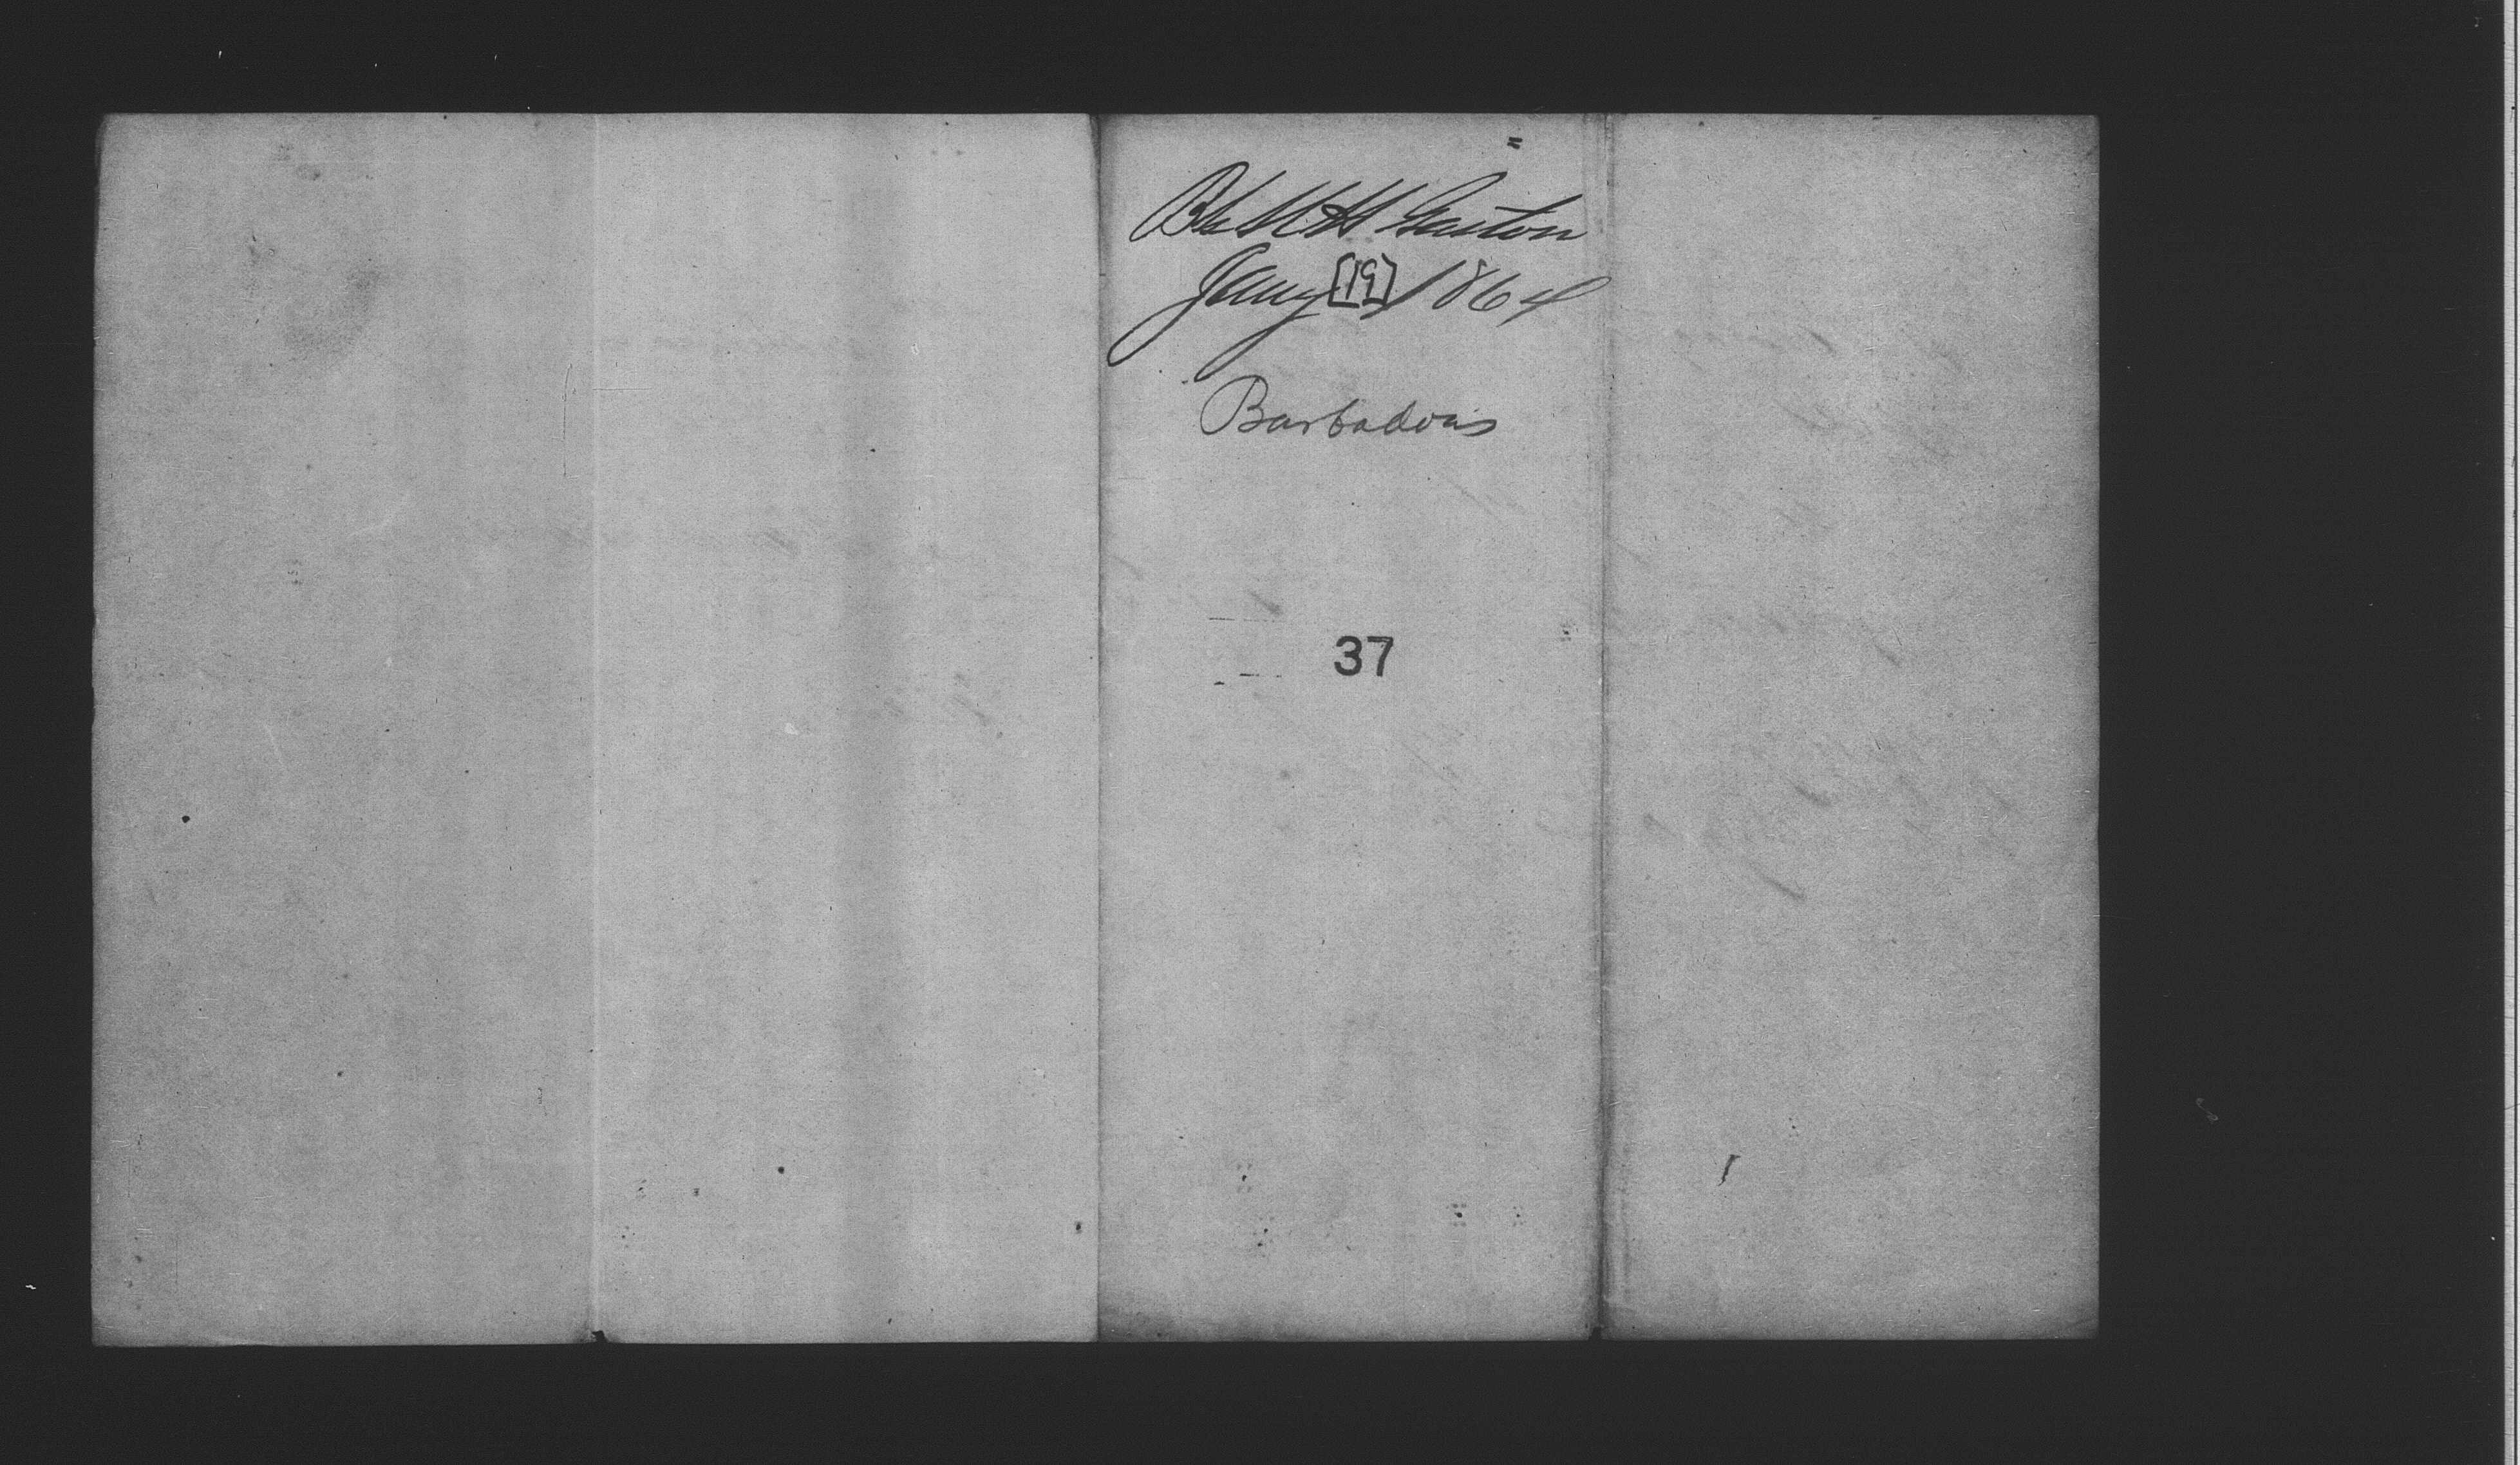 Bk M H Gaston
Jany [19] 1864
Barbadois
37